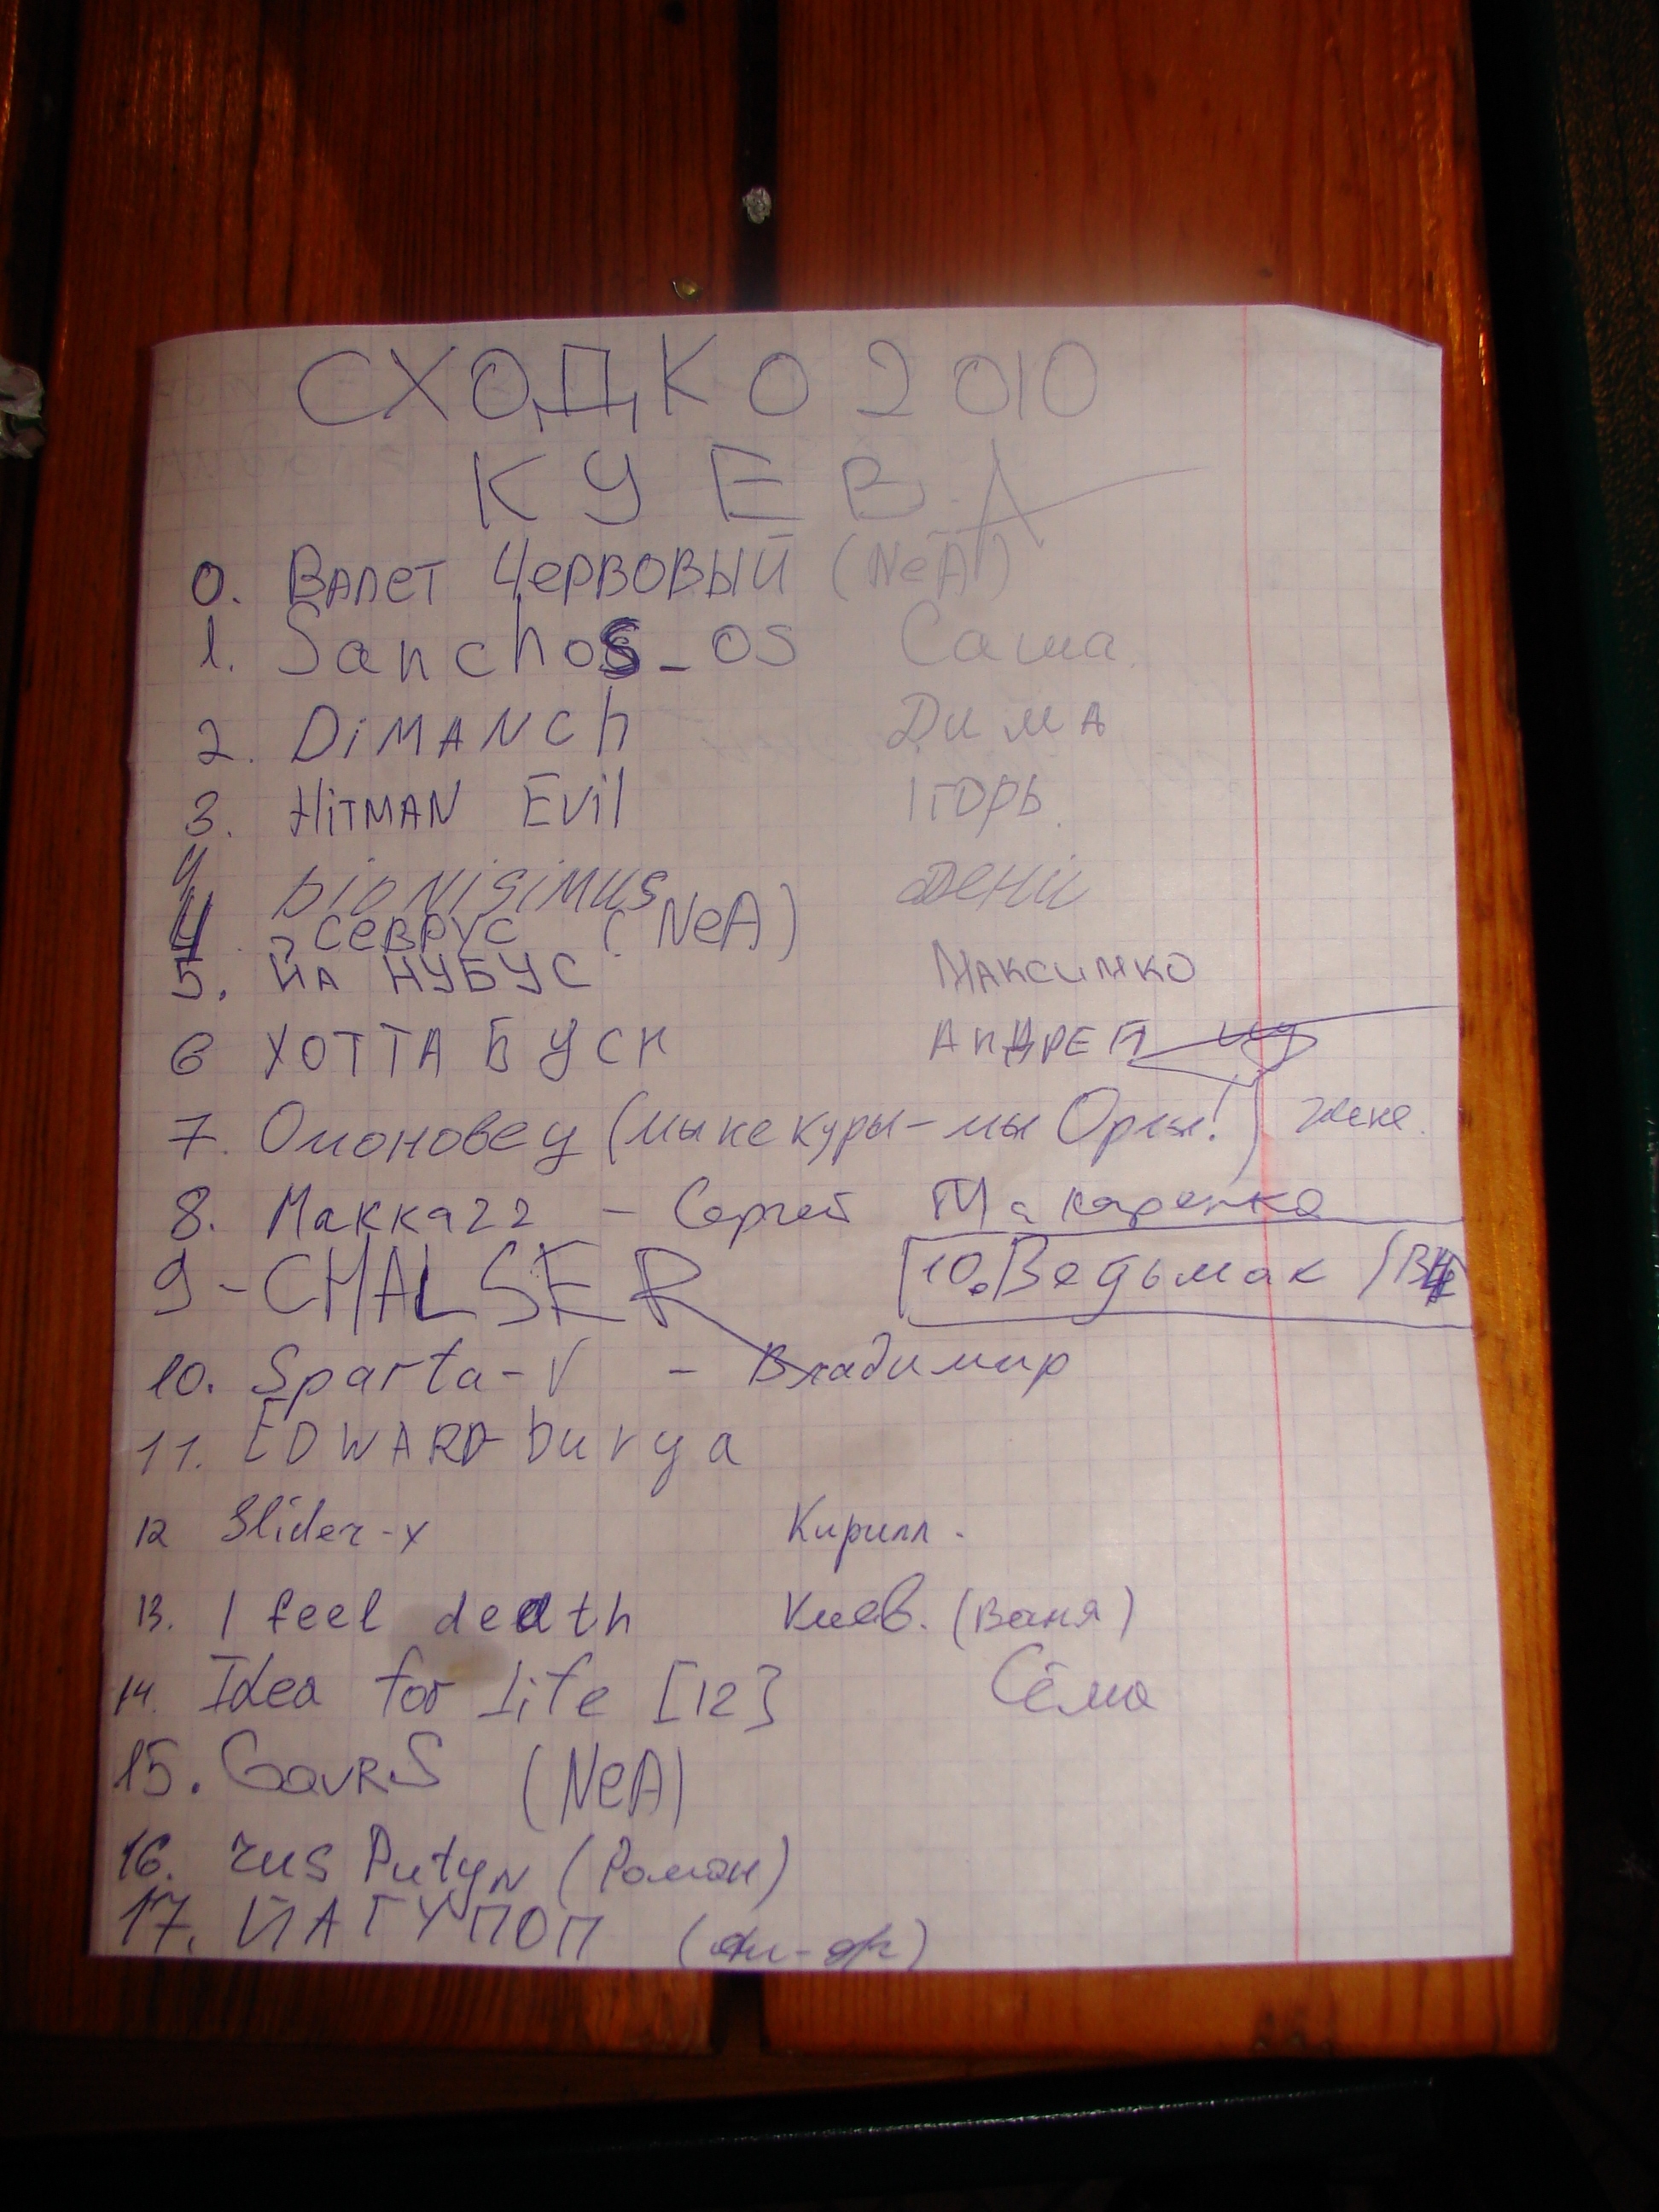 СХОДКО 2010
КУЕВА
0. Валет Червовый (NeA)
1. Sanchos_os Саша
2. DiMANCh Дима
3. HiTMAN Evil Ігорь
4 DioNiSiMUS Дени
4. Севрус (NeA)
5. Йа НУБУС Максимко
6 ХОТТАБУСН АНДРЕЙ
7. Омоновец (мы не куры-мы Орлы!) Женя.
8. Маkka22 – Сергей Макаренко
9 - CHALSER 10. Ведьмак
10. Sparta-V - Владимир
11. EDWARD burya
12 Slider-x Кирилл.
13. I feel death Киев. (Ваня)
14. Idea for life [12] Сёма
15. GavRS (NeA)
16. rus PutyN (Роман)
17. ЙА ГУПОП